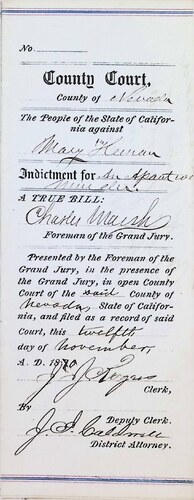 No.
County Court,
County of Nevada
The People of the State of Califor-
nia against
Mary
Indictment for An
murder.
A TRUE BILL:
Charles Marsh
Foreman of the Grand Jury.
Presented by the Foreman of the
Grand Jury, in the presence of
the Grand Jury, in open County
Court of the said County of
Nevada, State of Califor-
nia, and filed as a record of said
Court, this twelfth
day of November,
A. D. 1870
J. J. Rogers
Clerk,
By
Deputy Clerk.
J. I. Caldwell
District Attorney.